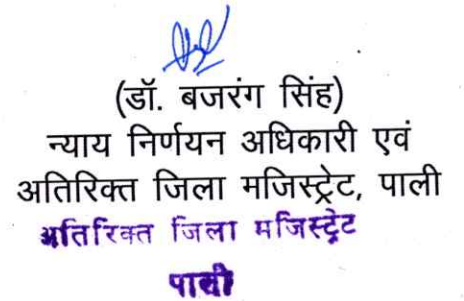 (डॉ. बजरंग सिंह)
न्याय निर्णयन अधिकारी एवं
अतिरिक्त जिला मजिस्ट्रेट, पाली
अतिरिक्त जिला मजिस्ट्रेट
पाली